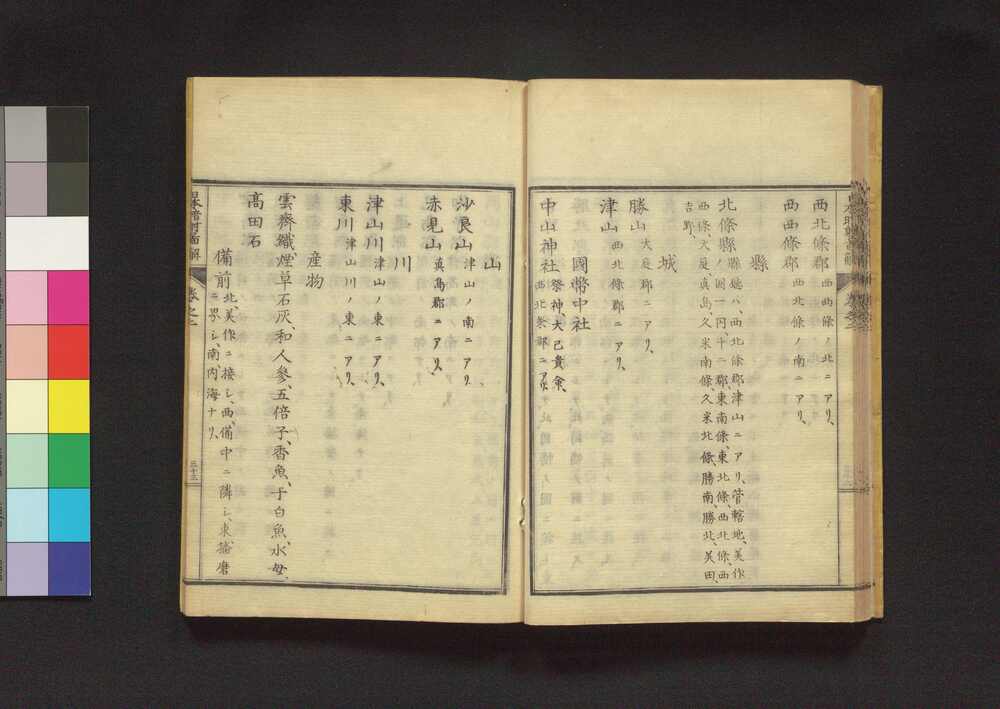 西北條郡 西西條ノ北ニアリ、
西西條郡 西北條ノ南ニアリ、
縣
北條縣 縣廳ハ、西北條郡津山ニアリ、管轄地、美作
ノ國一円十二郡、東南條、東北條、西北條、西
西條、大庭、眞島、久米南條、久米北條、勝南、勝北、英田、
吉野、
城
勝山 大庭郡ニアリ、
津山 西北條郡ニアリ、
國幣中社
中山神社 祭神、大己貴命、
西北條郡ニアリ、
山
沙良山 津山ノ南ニアリ、
赤見山 眞島郡ニアリ、
川
津山川 津山ノ東ニアリ、
東川 津山川ノ東ニアリ、
産物
雲齊織、煙草石灰、和人參、五倍子、香魚、干白魚、水母、
高田石
備前 北、美作ニ接シ、西、備中ニ隣シ、東、播磨
ニ界シ、南、内海ナリ、
卷之二
三十三